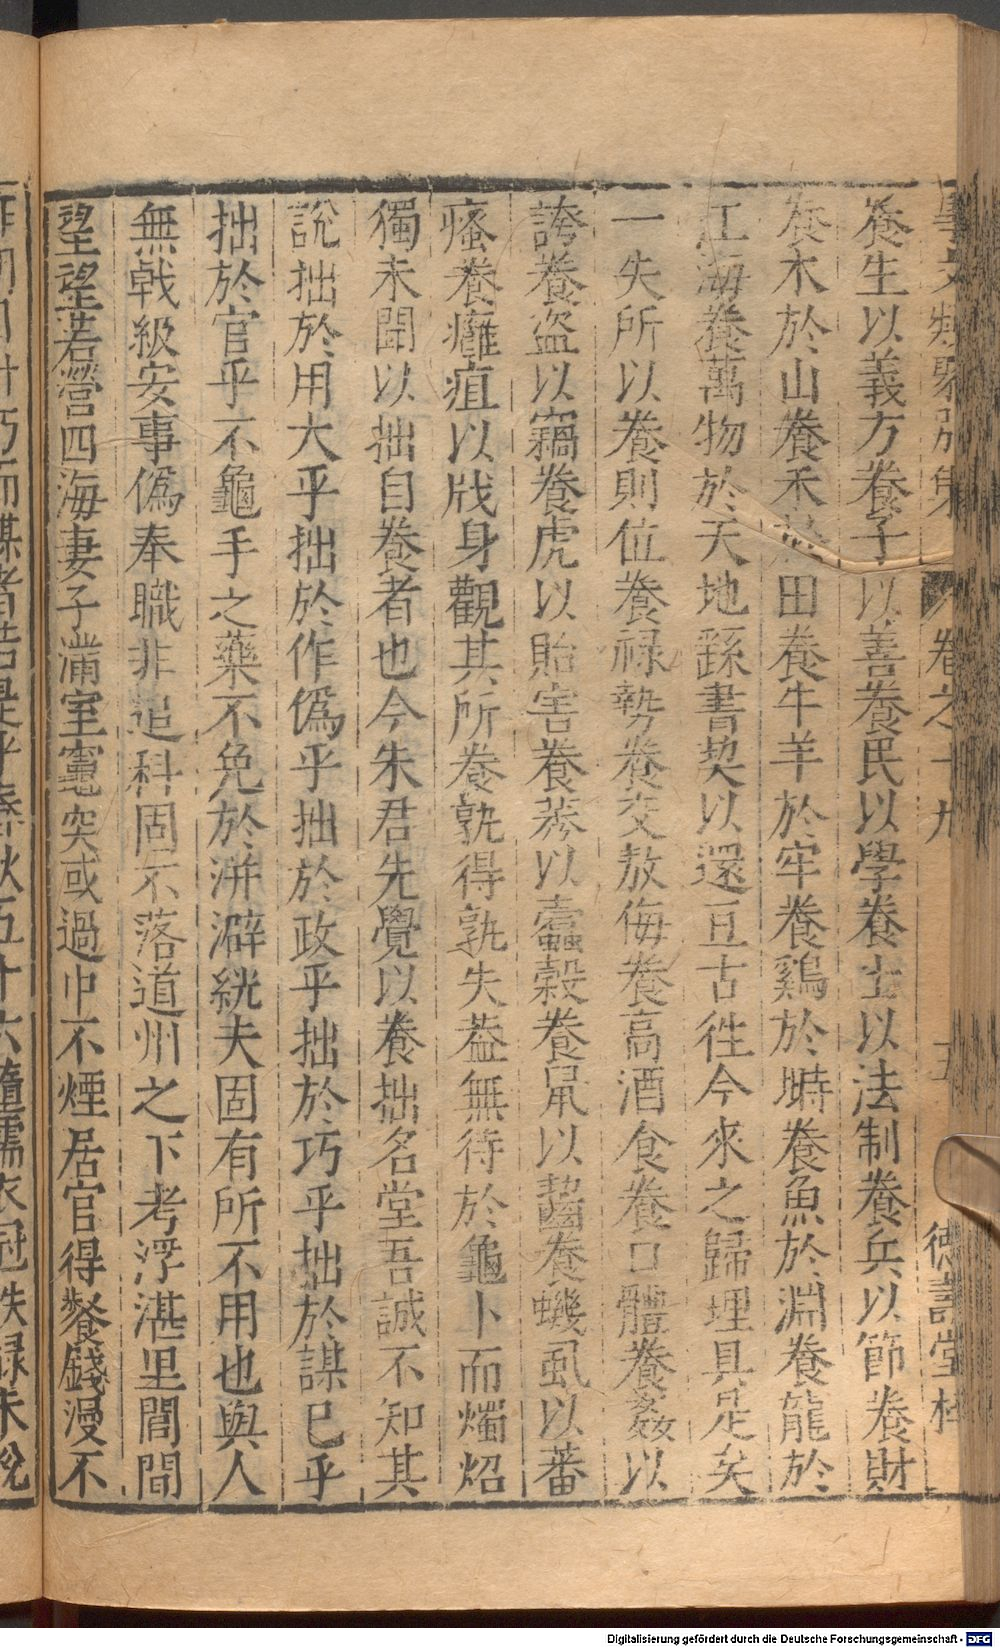 事文類聚別集 卷之十九 五 德壽堂梓
養生以義方養子以善養民以學養士以法制養兵以節養財
養木於山養禾於田養牛羊於牢養鷄於塒養魚於淵養龍於
江海養萬物於天地繇書契以還亘古徃今來之歸理具是矣
一失所以養則位養祿勢養交敖侮養高酒食養口體養姦以
誇養盜以竊養虎以貽害養莠以蠹穀養鼠以齧養蟣虱以蕃
瘙養癰疽以戕身觀其所養孰得孰失葢無待於龜卜而燭炤
獨未聞以拙自養者也今朱君先覺以養拙名堂吾誠不知其
說拙於用大乎拙於作僞乎拙於政乎拙於巧乎拙於謀已乎
拙於官乎不龜手之藥不免於洴澼絖夫固有所不用也與人
無戟級安事僞奉職非追科固不落道州之下考浮湛里閭間
望望若營四海妻子滿室竈突或過巾不煙居官得餐錢漫不